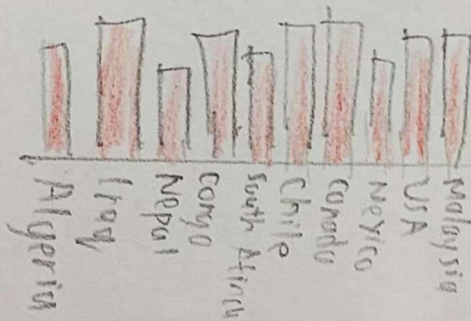 Algeria
Iraq
Nepal
Congo
South Africa
Chile
Canada
Mexico
USA
Malaysia